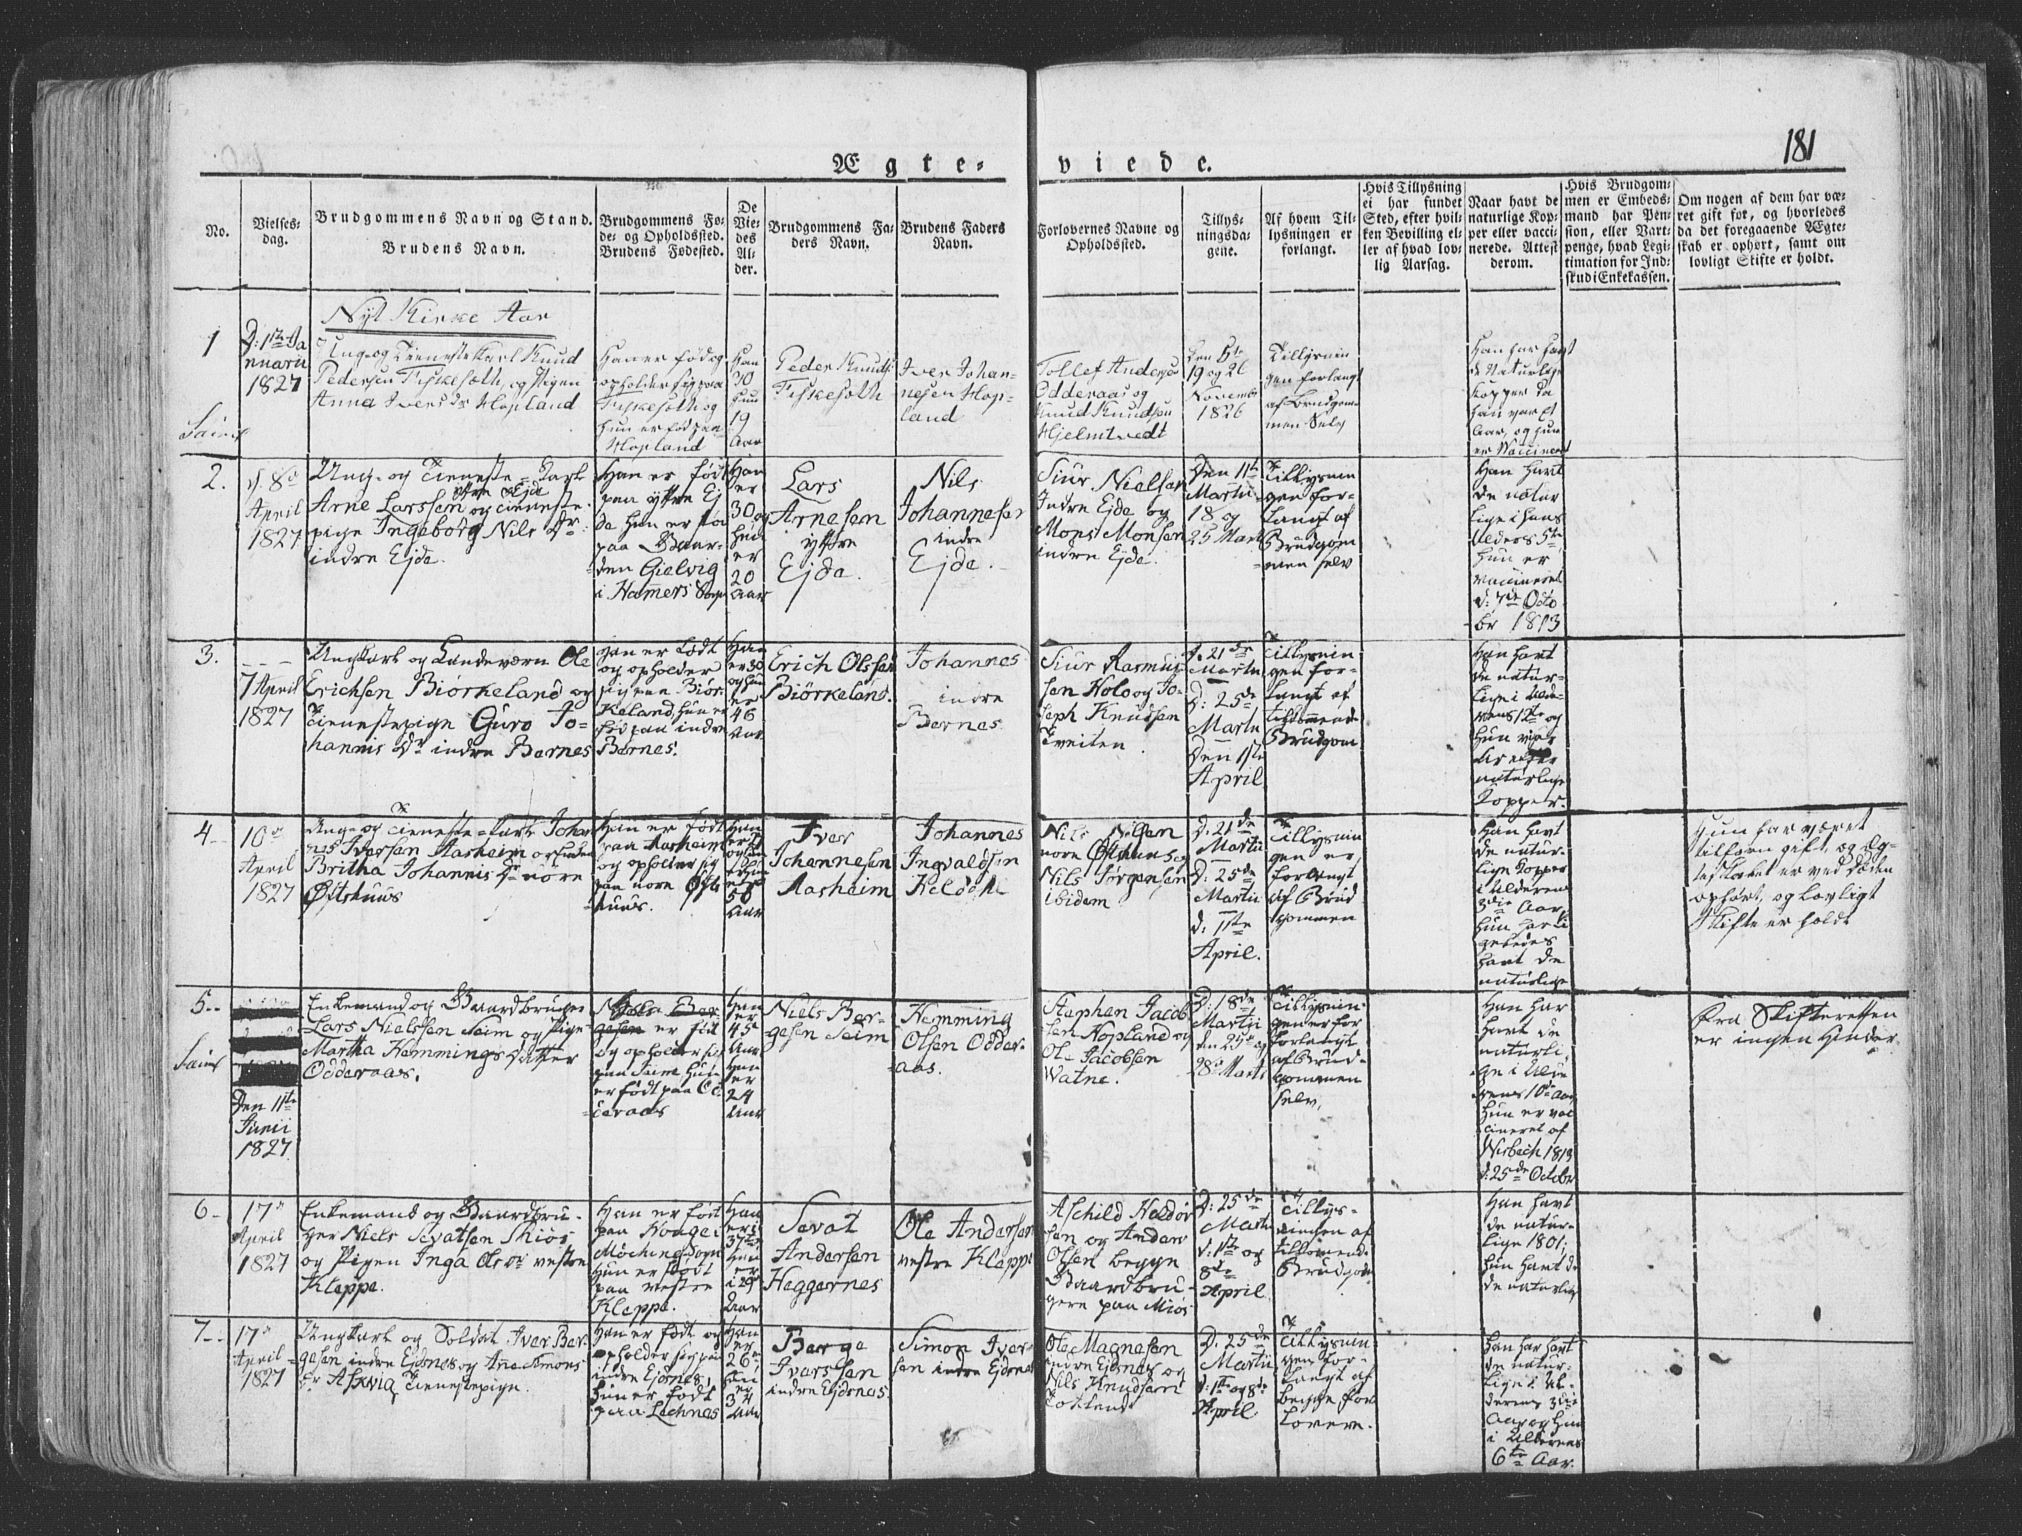 181
Ægte-
viede.
No.
Vielses-
dag.
Brudgommens Navn og Stand.
Brudens Navn.
Brudgommens Fø-
de- og Opholdssted.
Brudens Fødested.
De
Vie-
des
Al-
der.
Brudgommens Fa-
ders Navn.
Brudens Faders
Navn.
Forlovernes Navne og
Opholdssted.
Tillys-
ningsda-
gene.
Af hvem Til-
lysningen er
forlangt.
Hvis Tillysning
ei har fundet
Sted, efter hvil-
ken Bevilling el-
ler af hvad lov-
lig Aarsag.
Naar havt de
naturlige Kop-
per eller vacci-
nerede. Attest
derom.
Hvis Brudgom-
men er Embeds-
mand har Pen-
sion, eller Vart-
penge, hvad Legi-
timation for Ind-
skud i Enkekassen.
Om nogen af dem har væ-
ret gift før, og hvorledes
da det foregaaende Ægte-
skab er ophørt, samt om
lovligt Skifte er holdt.
Nyt Kirke Aar
1
D: 1te Ja
nuarii
1827
Ung- og Tieneste Karl Knud
Pedersen Fiskesæth, og Pigen
Anna Ivers Dr Hopland
Han er fød og
opholder sig paa
Fiskesæth og
hun er fød paa
Hopland
Han
30
hun
19
Aar
Peder Knuds
Fiskesæth
Iver Johan-
nesen Hop-
land
Tollef Anders
Odderaas og
Knud Knudsen
Hjelmtvedt
19 og 26
Novembr
1826
Tillysnin
gen forlangt
af Brudgom-
men Selv
Han har havt
d Naturlige
Kopper da
han var et
Aar, og hun
er Vaccineret
2.
d. 8de
April
1827
Ung- og Tieneste-Karl
Arne Larssen ytre Ejde og Tieneste-
pige Ingeborg Nils Dr
indre Ejde.
Han er født
paa ytre Ej
de hun er fød
paa Gaar-
den Gielvig
i Hamers Sogn
Han
er
30 og
hun
er
20
Aar
Lars
Arnesen
ytre
Ejde.
Nils
Johannesen
indre
Ejde.
Siur Nielsen
Indre Ejde og
Mons Monsen
indre Ejde.
Den 11te
Martii
18 og
25 Mart
Tillysnin
gen for-
langt af
Brudgom
men selv
Han havt
de natur
lige i hans
Alders 5te
hun er
vaccineret
d: 7de Octo
br 1813
3.
7 April
1827
Ungkarl og Landeværn Ole
Erichsen Biørkeland og
Tienestepige Guro Jo-
hannis Dr indre Bernes
Han er født
og opholder
sig paa Biør
keland, hun er
fød paa indre
Bernes.
Han
er 30
og hun
er
46
Aar
Erich Olssen
Biørkeland.
Johannes
indre
Bernes
Siur Rasmus
sen Holo og Jo-
seph Knudsen
Tveiten.
d. 21de
Martii
d: 25de
Martii
Den 1ste
April
Tillysnin
gen for-
langt af
tilkommende
Brudgom
Han havt
de natur-
lige i Alde-
rens 12te og
hun
naturlige
Kopper.
4
10de
April
1827
Ung- og Tieneste-karl Johan
nes Iversen Aasheim og Enken
Britha Johannis Dr nore
Øftshuus
Han er født
paa Aasheim
og opholder sig
paa nore Øfts
huus.
Han
er
og
56
Aar
Iver
Johannesen
Aasheim
Johannes
Ingvaldsen
Keldahl
Nils Nilsen
nore Øftshuus og
Nils Jørgensen
ibidem
D: 21de
Martii
D: 25de
Martii
d: 1ste
April.
Tillysnin
gen er
forlangt
af Brud
gommen
Han havt
de natur-
lige Kopper
i Alderens
3die Aar
hun har li
geledes
havt de
naturlige
Hun har været
tilforn gift, og Æg-
teskabet er ved Døden
ophørt, og lovligt
Skifte er holdt
5
Den 11te
Junii
1827.
Enkemand og Gaardbruger
Lars Nielssen Seim og Pige
Martha Hemmings Datter
Odderaas.
er fød
og opholder sig
paa Seim hun
er født paa Od
deraas
Han
er
45
Aar
Hun
er
24
Aar
Niels Ber-
gesen Seim
Hemming
Olsen Odder-
aas.
Stephen Jacob
sen Hopland og
Ole Jacobsen
Watne.
D: 18de
Martii
den 25de og
28de Marti
Tillysnin-
gen er for
forlangt
af Brud-
gommen
selv,
Han har
havt de
naturli-
ge i Alde
rens 10de Aar
hun er vac
cineret af
Nisbech 1813
d: 25de October
Fra Skifteretten
er ingen Hinder
6
17de
April
1827
Enkemand og Gaardbru-
ger Niels Sevatsen Miøs
og Pigen Inga Ols Dr vestre
Kleppe.
Han er født
paa Houge i
Møching Sogn
hun er født
paa vestre
Kleppe.
Han
er i
37te
hun
er
i 29
Aar
Sevat
Andersen
Heggernes
Ole Anderssen
vestre Kleppe
Aschild Haldor
sen og Anders
Olsen begge
Gaardbru-
gere paa Miøs
D: 25de
Martii
d: 1ste og
8de
April
Tillys-
ningen af
tilkommende
Brudgom
Han havt
de natur-
lige 1801;
hun havt d
de naturlige
7
17de
April
1827
Ungkarl og Soldat Iver Ber-
gesen indre Ejdsnes og Ane Simons
Dr Askvig Tienestepige.
Han er født og
opholder sig paa
indre Ejdsnes,
hun er født
paa Lechnes
Han
er
26
hun
er
34
Aar
Berge
Ivarssen
indre Ejdsnes
Simon Iver-
sen indre Ejdsnes
Ole Magnesen
indre Ejdsnes og
Nils Knudsen
Totland
D. 25de
Martii
d: 1ste og 8de
April
Tillysnin
gen for-
langt af
begge for
lovere.
Han har havt
de natur-
lige i Al-
derens 3die
Aar og hun
i Alderens
6te Aar.